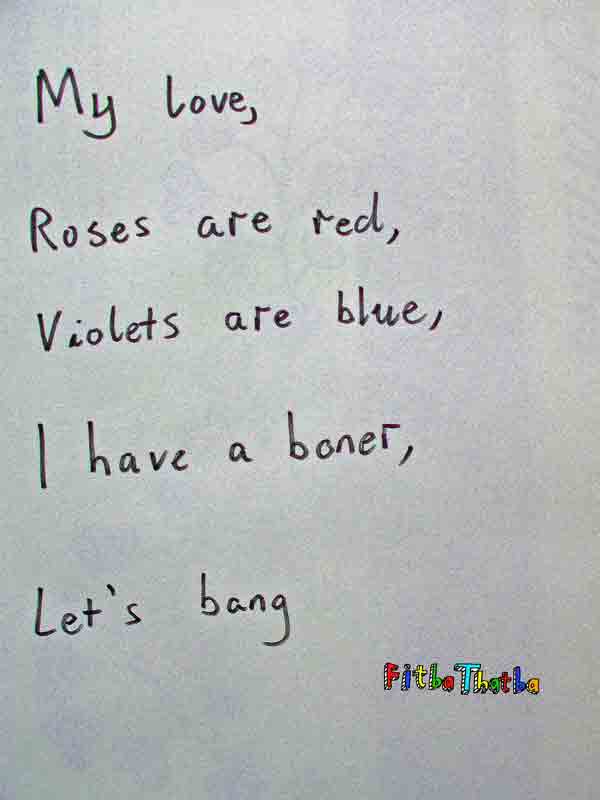 My love,
Roses are red,
Violets are blue,
I have a boner,
Let's bang
FitbaThatba